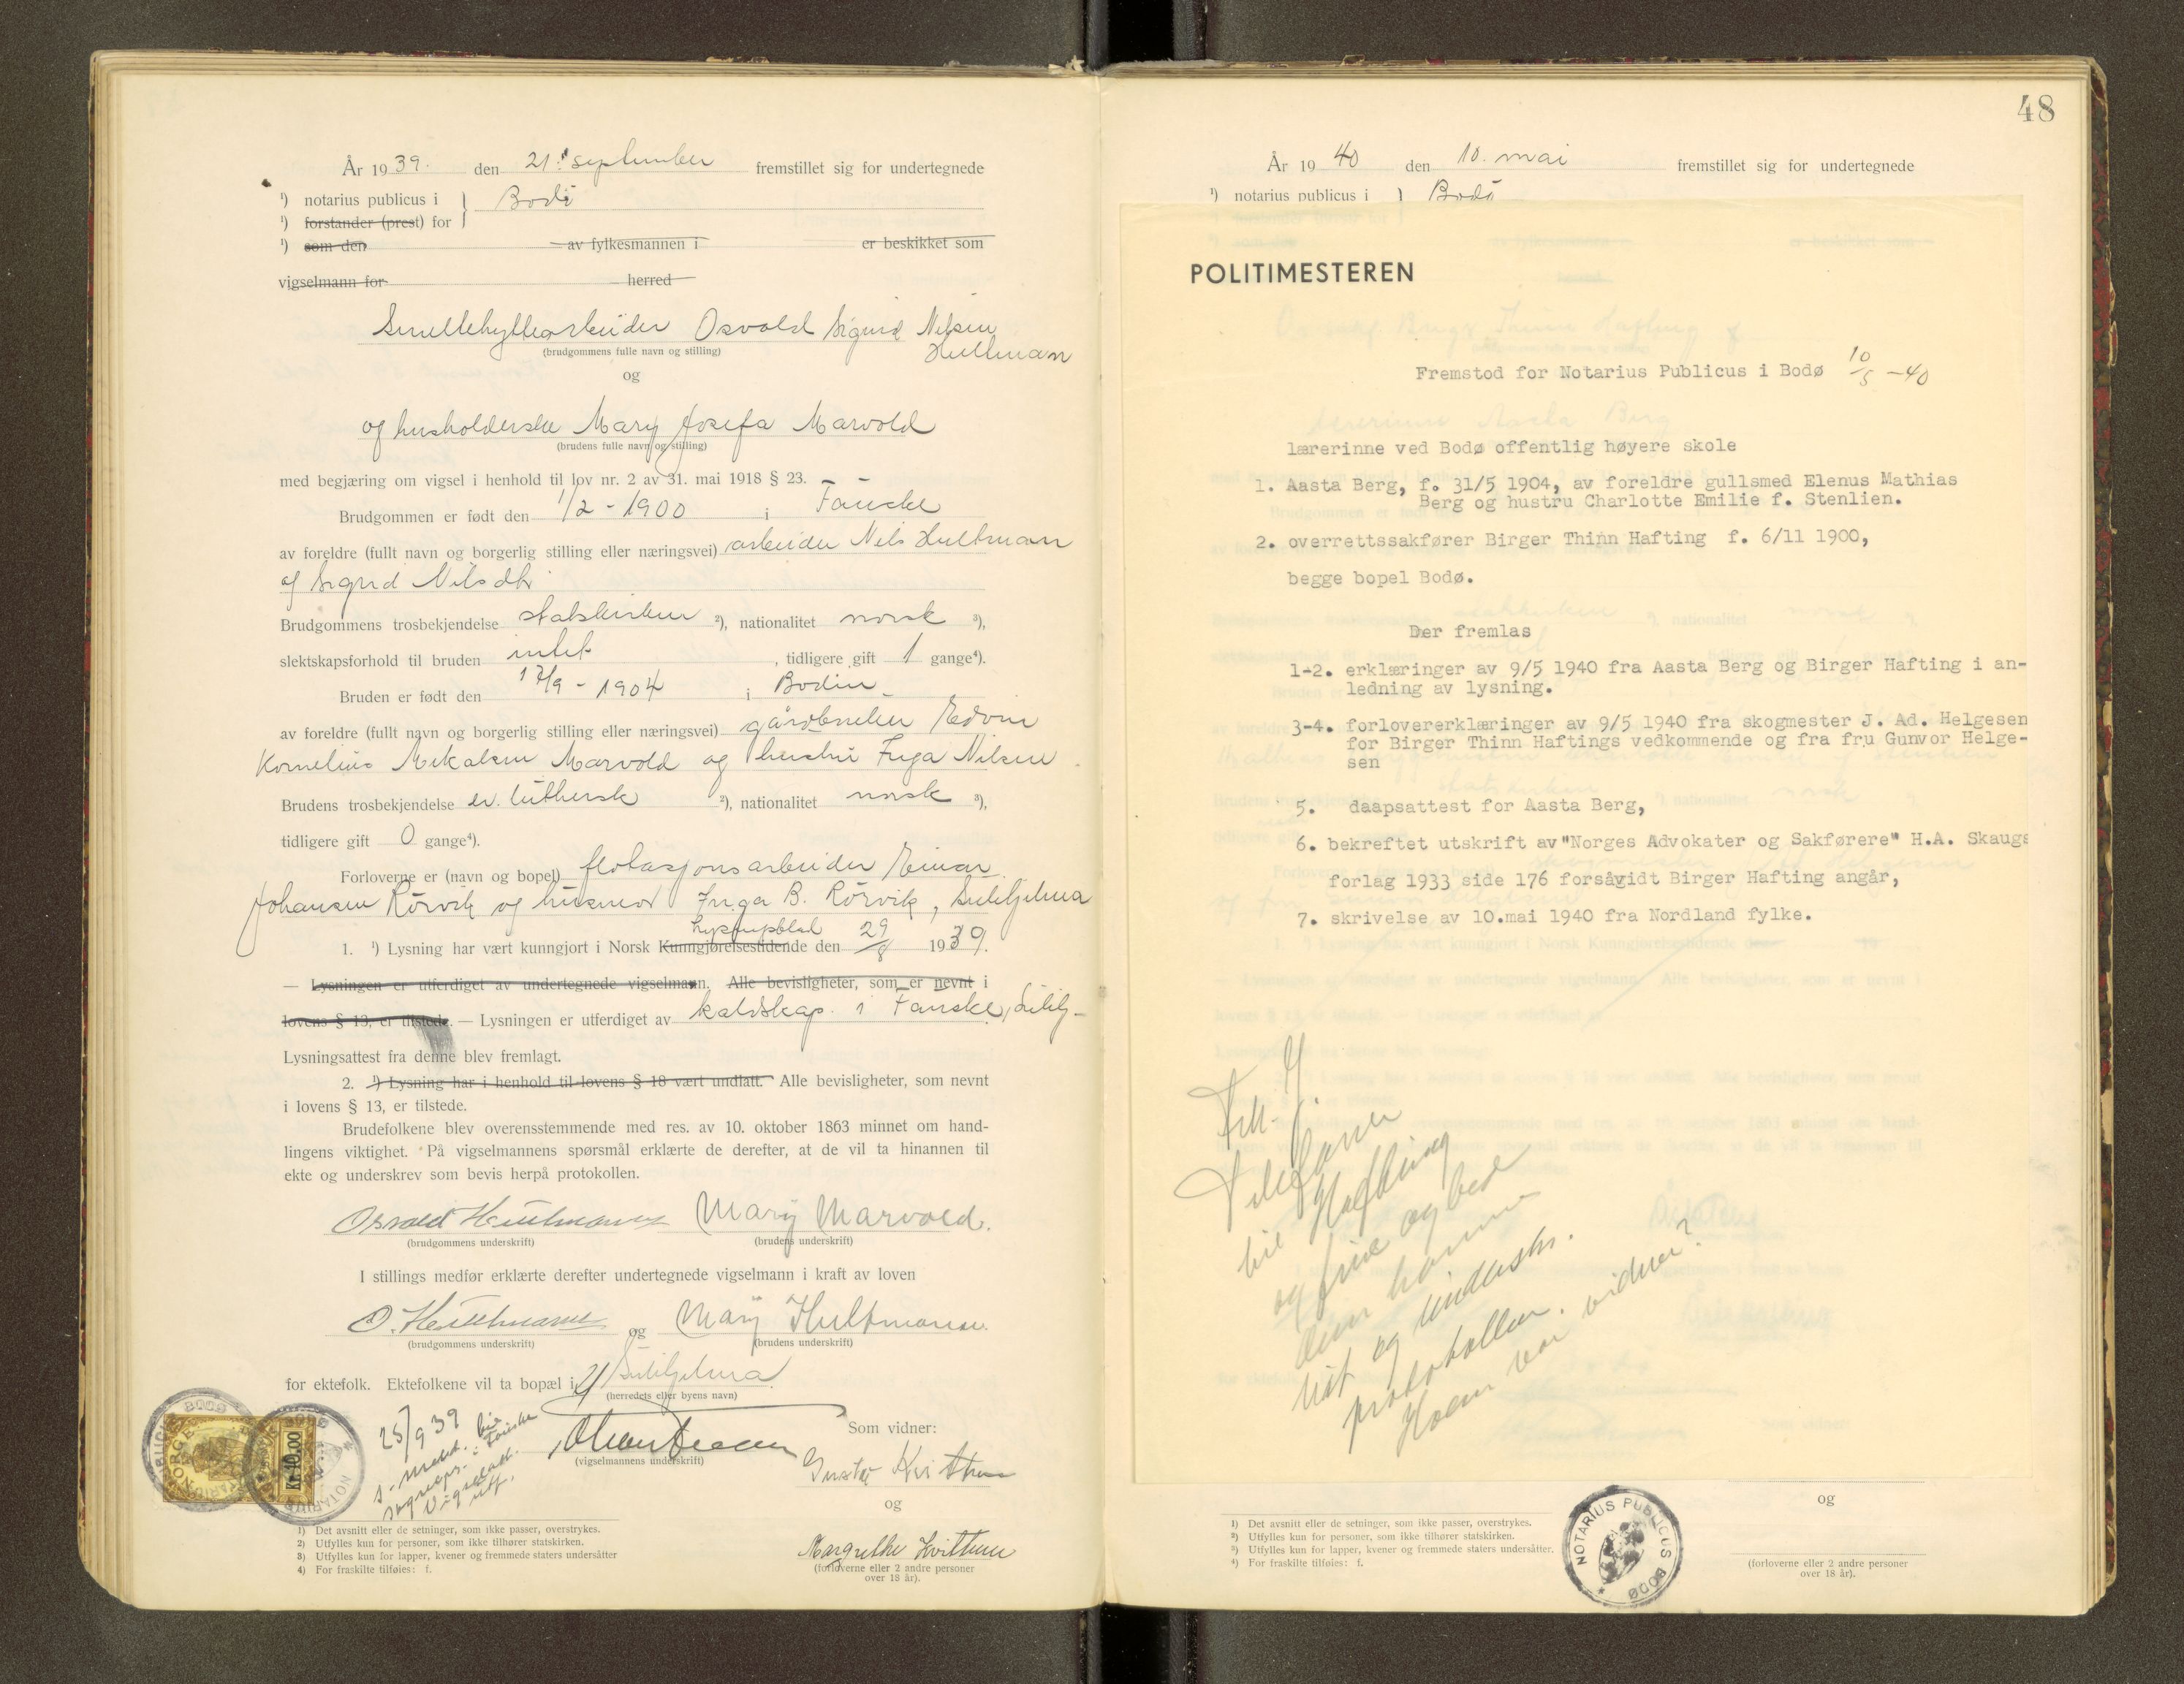 År 1939. den 21. september fremstillet sig for undertegnede
¹) notarius publicus i } Bodö
¹) forstander (prest) for
¹) som den av fylkesmannen i er beskikket som
vigselmann for herred
Smeltehyttearbeider Osvald Sigurd Nilsen
Hultman
(brudgommens fulle navn og stilling)
og
og husholderske Mary Josefa Marvold
(brudens fulle navn og stilling)
med begjæring om vigsel i henhold til lov nr. 2 av 31. mai 1918 § 23.
Brudgommen er født den 1/2 - 1900 i Fauske
av foreldre (fullt navn og borgerlig stilling eller næringsvei) arbeider Nils Hultman
og Sigrid Nilsdtr
Brudgommens trosbekjendelse statskirken ²), nationalitet norsk ³),
slektskapsforhold til bruden intet , tidligere gift 1 gange⁴).
Bruden er født den 17/9 - 1904 i Bodin
av foreldre (fullt navn og borgerlig stilling eller næringsvei) gårdbruker Edvin
Kornelius Mikalsen Marvold og hustru Inga Nilsen
Brudens trosbekjendelse ev. luthersk ²), nationalitet norsk ³),
tidligere gift 0 gange⁴).
Forloverne er (navn og bopel) flotasjonsarbeider Einar
Johansen Rörvik og husmor Inga B. Rörvik, Sulitjelma
Lysingsblad
1. ¹) Lysning har vært kunngjort i Norsk Kunngjørelsestidende den 29/8 1939.
— Lysningen er utferdiget av undertegnede vigselmann. Alle bevisligheter, som er nevnt i
lovens § 13, er tilstede. — Lysningen er utferdiget av kaldskap. i Fauske, Sulitj-
Lysningsattest fra denne blev fremlagt.
2. ¹) Lysning har i henhold til lovens § 18 vært undlatt. Alle bevisligheter, som nevnt
i lovens § 13, er tilstede.
Brudefolkene blev overensstemmende med res. av 10. oktober 1863 minnet om hand-
lingens viktighet. På vigselmannens spørsmål erklærte de derefter, at de vil ta hinannen til
ekte og underskrev som bevis herpå protokollen.
Osvald Hultmann Mary Marvold.
(brudgommens underskrift) (brudens underskrift)
I stillings medfør erklærte derefter undertegnede vigselmann i kraft av loven
O. Hultmann og Mary Hultmann.
(brudgommens underskrift) (brudens underskrift)
for ektefolk. Ektefolkene vil ta bopæl i Sulitjelma
(herredets eller byens navn)
25/9 39
(vigselmannens underskrift)
Som vidner:
og
Margrethe
(forloverne eller 2 andre personer
over 18 år).
NORGE
Kr. 10.00
NOTARIUS PUBLICUS BODØ
1) Det avsnitt eller de setninger, som ikke passer, overstrykes.
2) Utfylles kun for personer, som ikke tilhører statskirken.
3) Utfylles kun for lapper, kvener og fremmede staters undersåtter
4) For fraskilte tilføies: f.
48
År 1940 den 10. mai fremstillet sig for undertegnede
¹) notarius publicus i } Bodö
POLITIMESTEREN
Fremstod for Notarius Publicus i Bodø 10/5 -40
lærerinne ved Bodø offentlig høyere skole
1. Aasta Berg, f. 31/5 1904, av foreldre gullsmed Elenus Mathias
Berg og hustru Charlotte Emilie f. Stenlien.
2. overrettssakfører Birger Thinn Hafting f. 6/11 1900,
begge bopel Bodø.
Der fremlas
1-2. erklæringer av 9/5 1940 fra Aasta Berg og Birger Hafting i an-
ledning av lysning.
3-4. forlovererklæringer av 9/5 1940 fra skogmester J. Ad. Helgesen
for Birger Thinn Haftings vedkommende og fra fru Gunvor Helge-
sen
5. daapsattest for Aasta Berg,
6. bekreftet utskrift av "Norges Advokater og Sakførere" H.A. Skaugs
forlag 1933 side 176 forsåvidt Birger Hafting angår,
7. skrivelse av 10.mai 1940 fra Nordland fylke.
Frk. H
Telefoner
til Hafting
og frue og bede
dem komme
hit og underskr.
protokollen.
Hvem var vidner?
og
(forloverne eller 2 andre personer
over 18 år).
NOTARIUS PUBLICUS BODØ
1) Det avsnitt eller de setninger, som ikke passer, overstrykes.
2) Utfylles kun for personer, som ikke tilhører statskirken.
3) Utfylles kun for lapper, kvener og fremmede staters undersåtter.
4) For fraskilte tilføies: f.